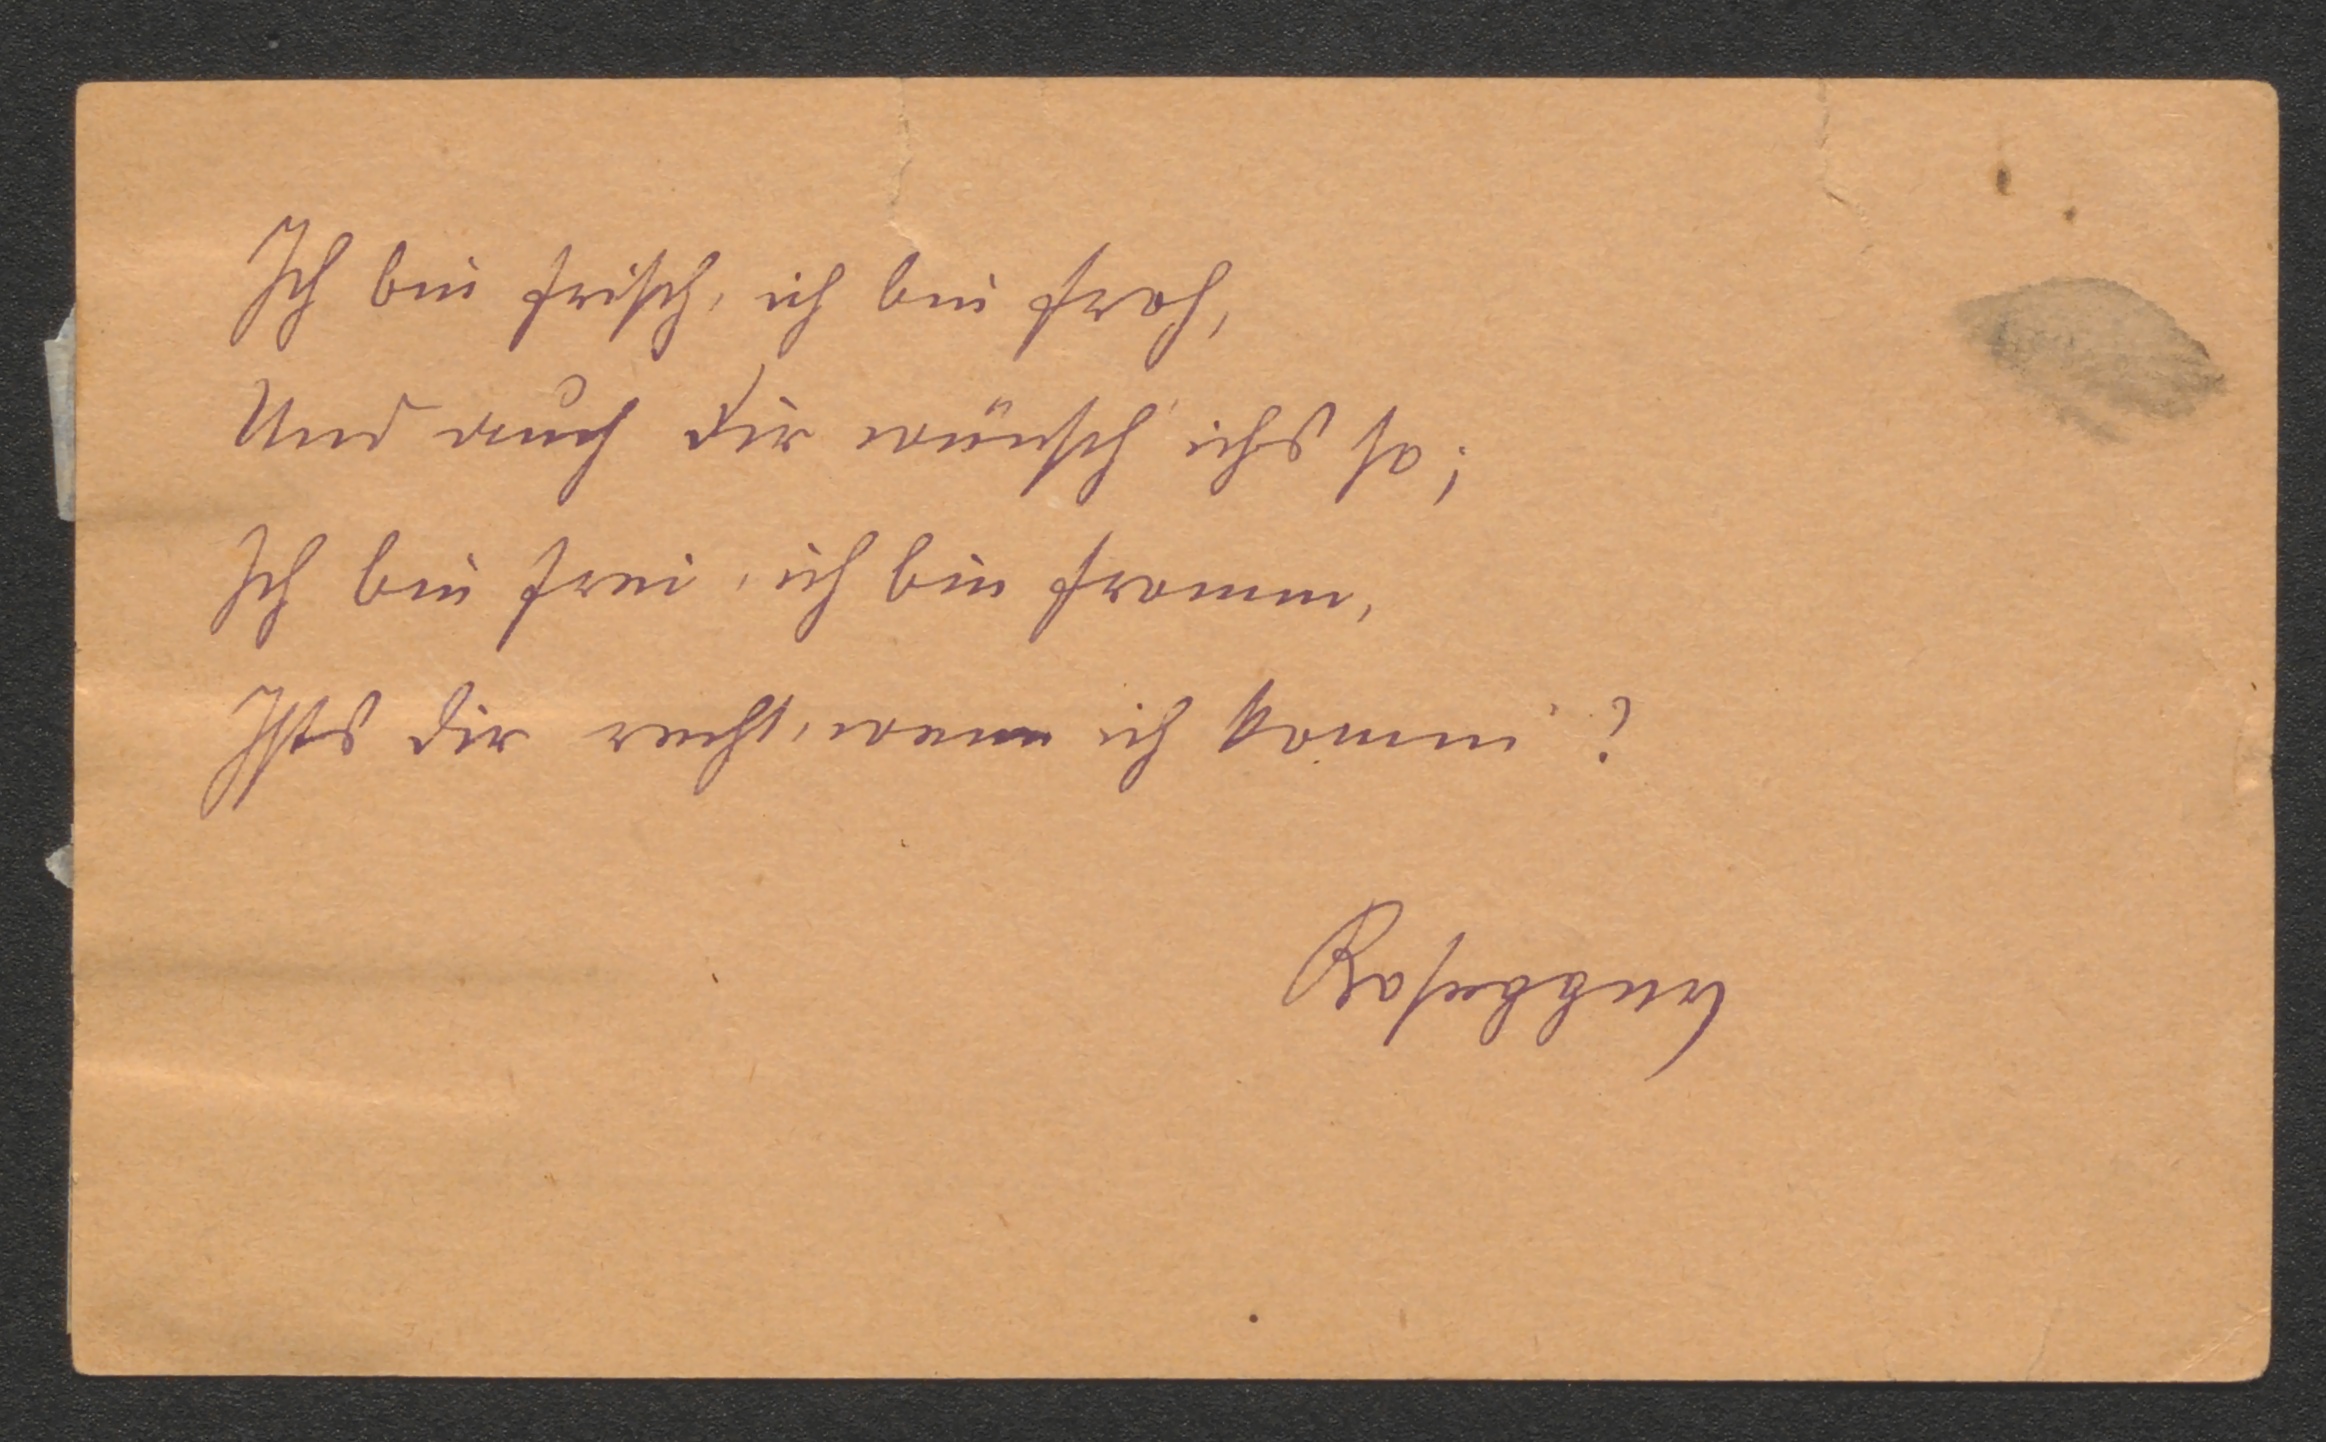 Ich bin frisch, ich bin froh,
Und auch dir wünsch' ichs so;
Ich bin frei, ich bin fromm,
Ists dir recht, wenn ich komm'?
Rosegger